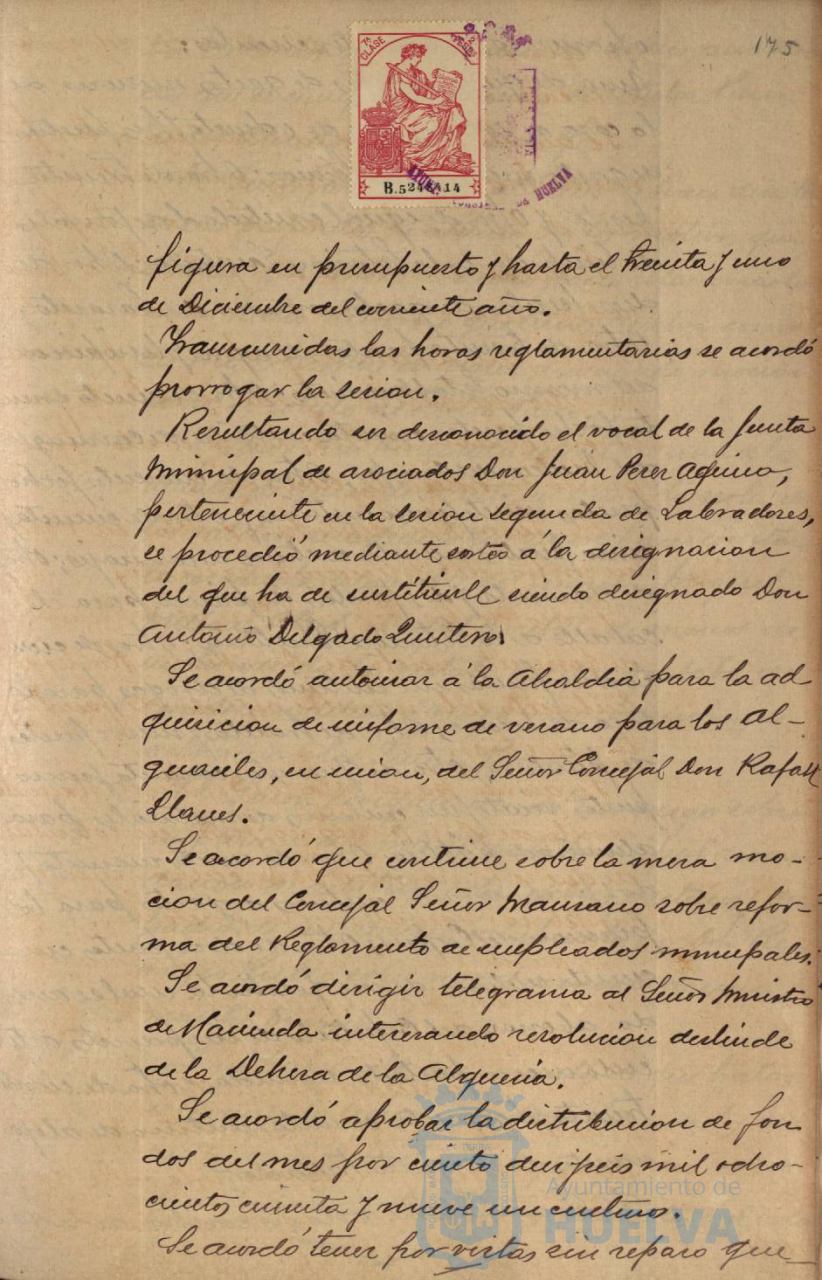 175
7ª CLASE
2 PESETAS
B.5
14
HUELVA
figura en presupuesto y hasta el treinta y uno
de Diciembre del corriente año.
Transcurridas las horas reglamentarias se acordó
prorrogar la sesion.
Resultando ser desconocido el vocal de la Junta
Municipal de asociados Don Juan Perez Aquino,
perteneciente en la sesion segunda de Labradores,
se procedió mediante sorteo á la designacion
del que ha de sustituirle siendo designado Don
Antonio Delgado Quintero.
Se acordó autorizar á la Alcaldia para la ad
quisicion de uniforme de verano para los Al-
guaciles, en union, del Señor Concejal Don Rafael
Llanes.
Se acordó que continue sobre la mesa mo-
cion del Concejal Señor Manzano sobre refor-
ma del Reglamento de empleados municipales.
Se acordó dirigir telegrama al Señor Ministro
de Hacienda interesando resolucion deslinde
de la Dehesa de la Alqueria.
Se acordó aprobar la distribucion de fon
dos del mes por ciento diez y seis mil ocho-
cientos cincuenta y nueve un centimo.
Se acordó tener por vistas sin reparo que
Ayuntamiento de
HUELVA